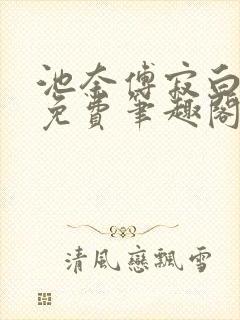 池奈傅寂白
免費筆趣閣
清風戀飄雪